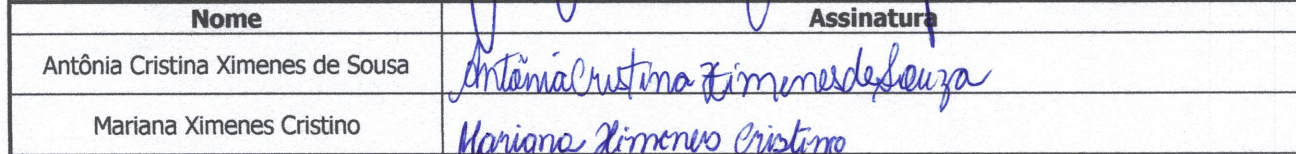 Nome Assinatura
Antônia Cristina Ximenes de Sousa Antônia Cristina Ximenes de Souza
Mariana Ximenes Cristino Mariana Ximenes Cristino